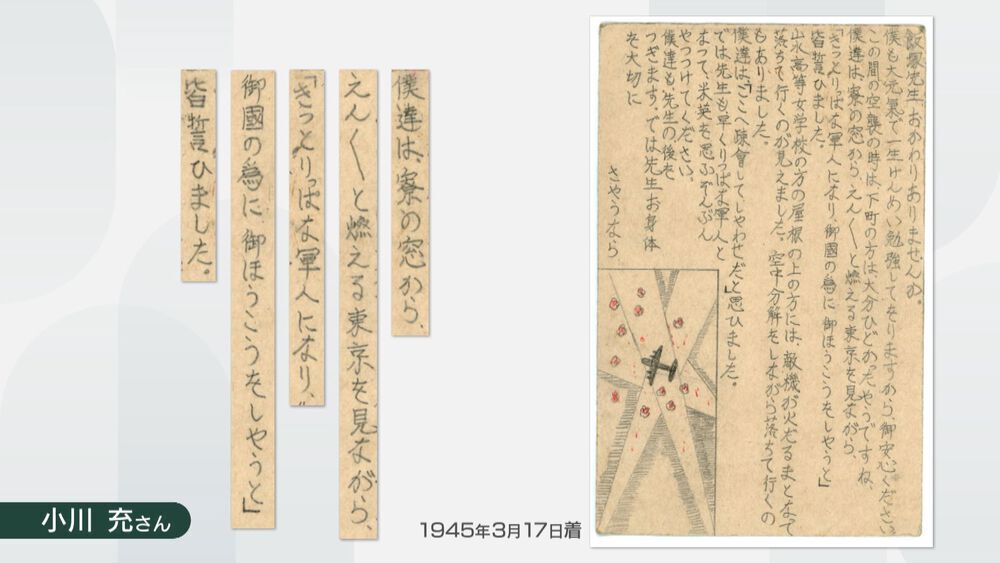 僕達は、寮の窓から、
えん〱と燃える東京を見ながら、
「きっとりっぱな軍人になり、
御國の為に、御ほうこうをしやうと」
皆誓ひました。
飯塚先生、おかわりありませんか。
僕も大元氣で一生けんめい勉強してをりますから、御安心ください。
この間の空襲の時は、下町の方は大分ひどかったやうですね、
僕達は、寮の窓から、えん〱と燃える東京を見ながら、
「きっとりっぱな軍人になり、御國の為に、御ほうこうをしやうと」
皆誓ひました。
高等女学校の方の屋根の上の方には、敵機が火だるまとなって
落ちて行くのが見えました。空中分解をしながら落ちて行くの
もありました。
僕達は、「ここへ疎會してしやわせだ」と思ひました。
では先生も早くりっぱな軍人と
なって、米英を思ふぞんぶん
やつつけてください、
僕達も先生の後を
つぎます、では先生お身体
を大切に
さやうなら
小川 充さん
1945年3月17日着